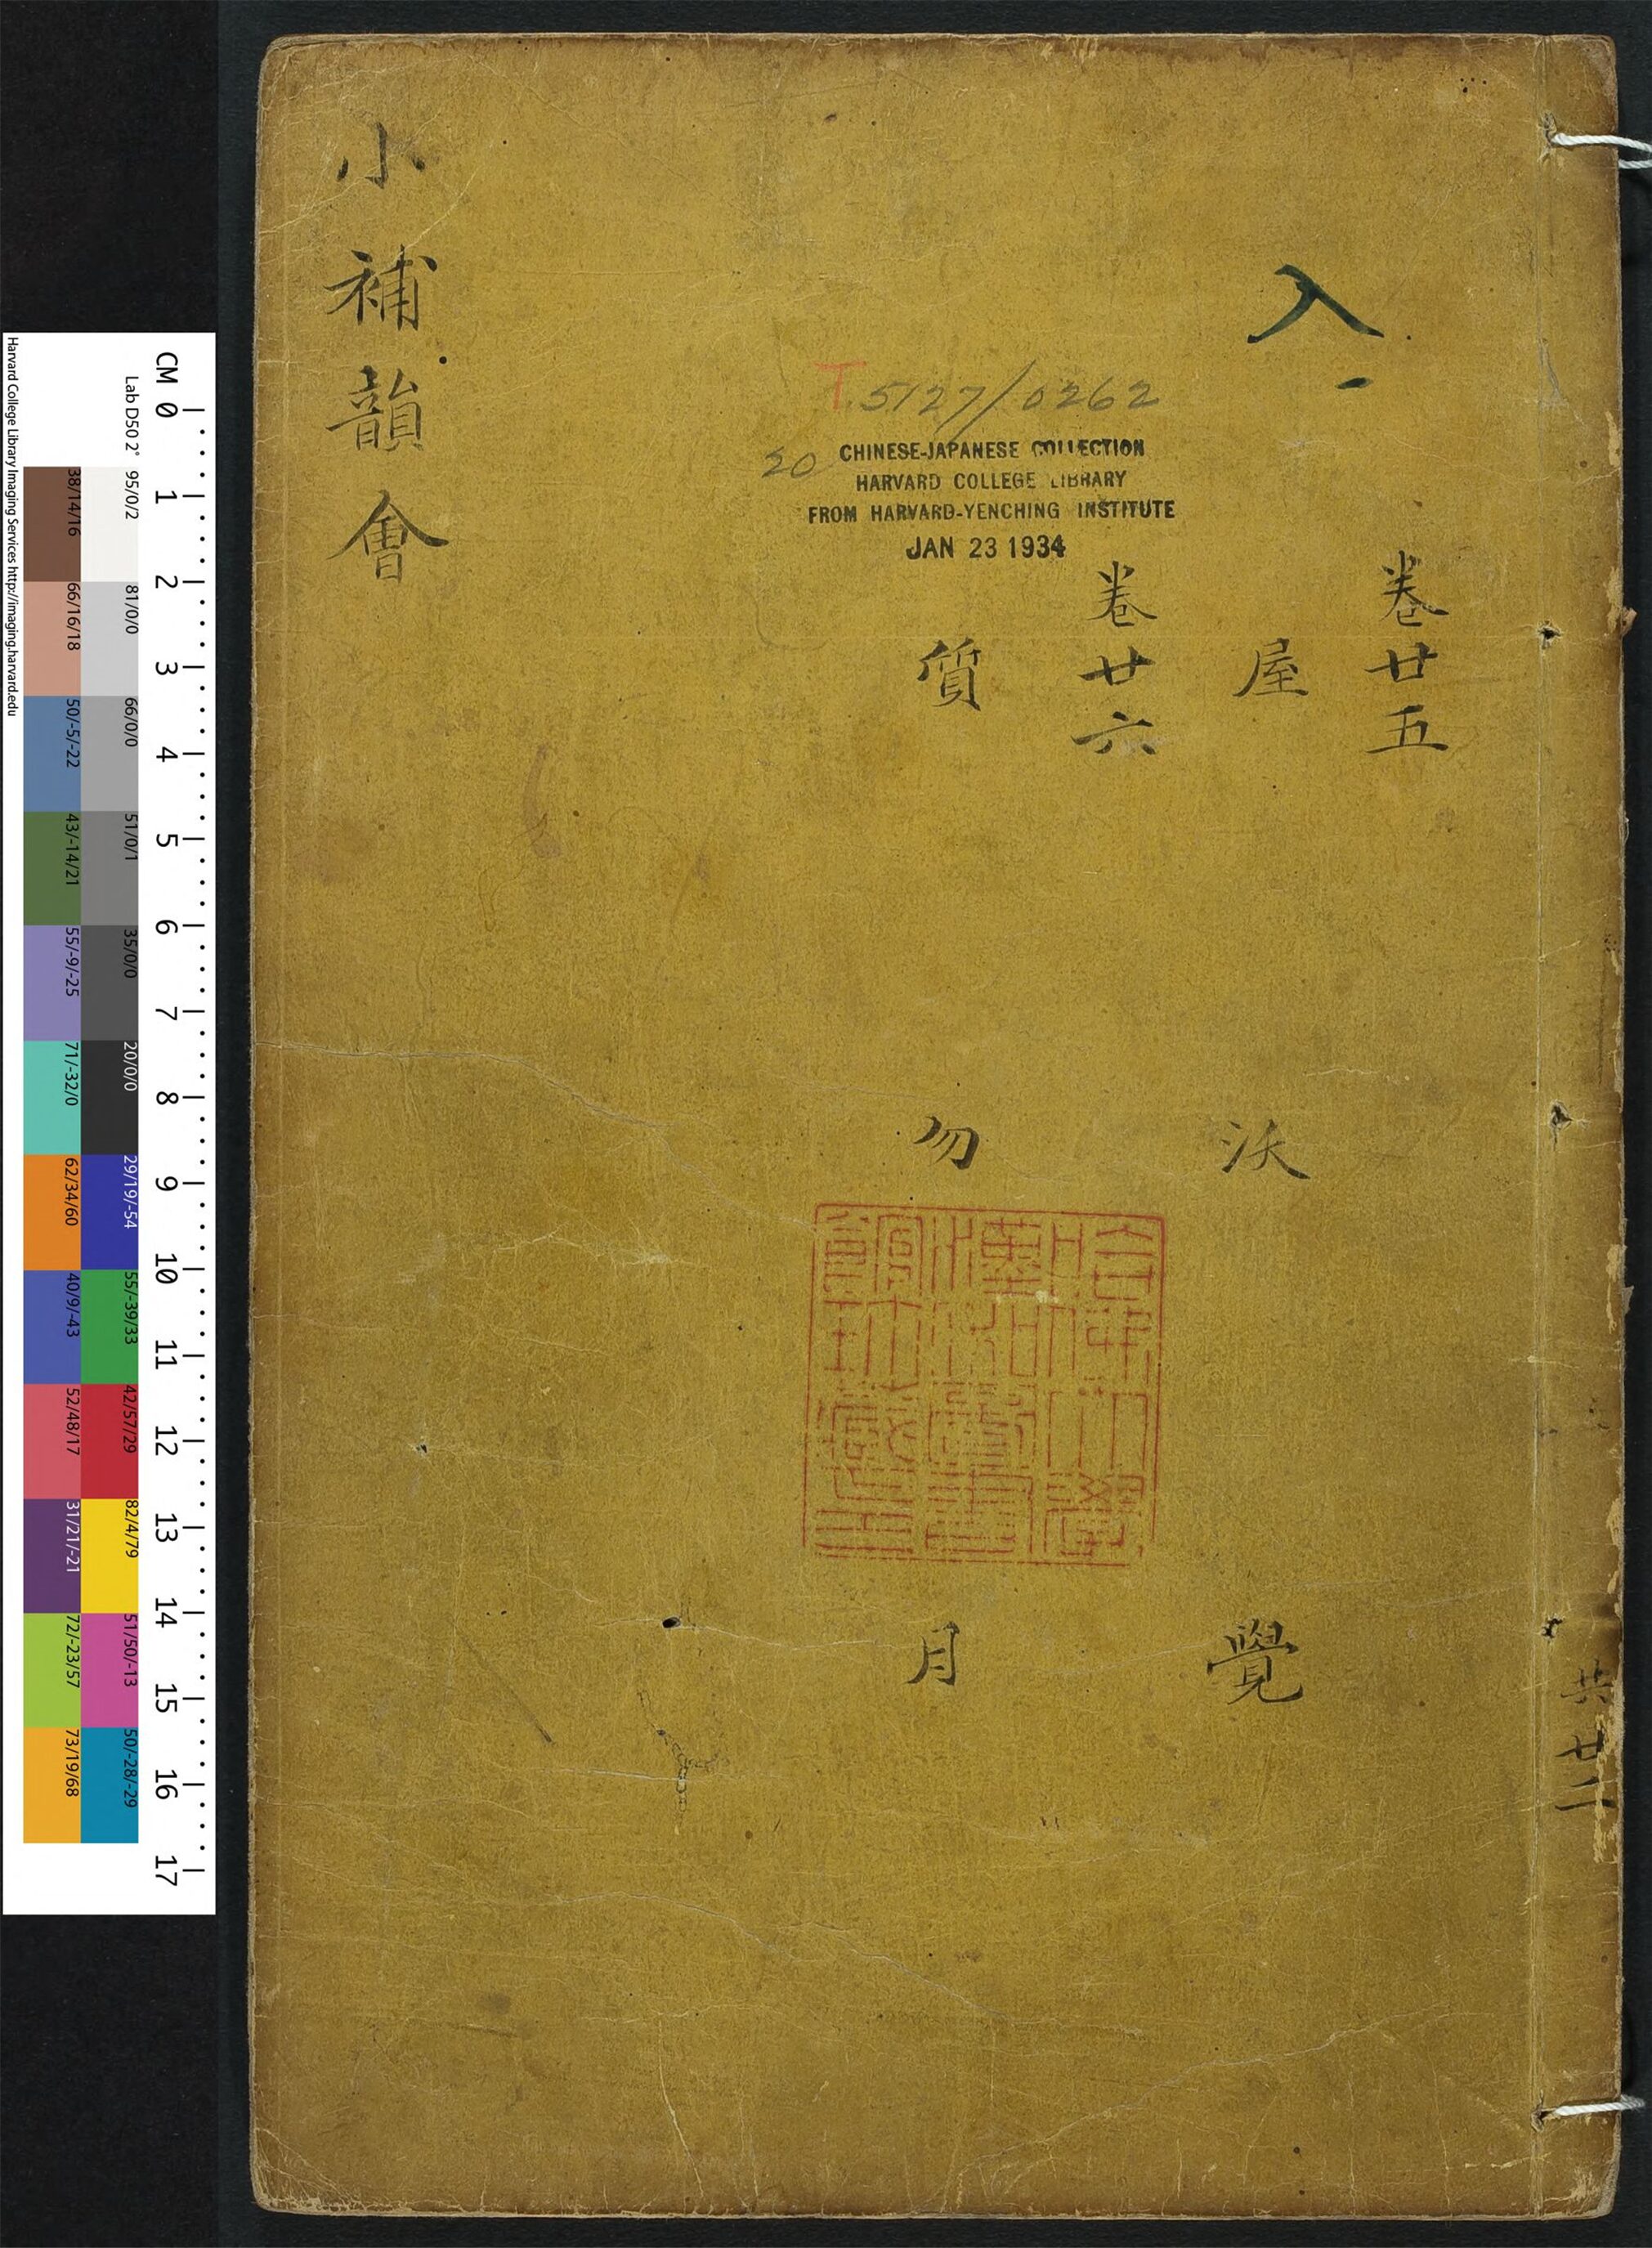 入
一
卷廿五
屋
沃
覺
卷廿六
質
勿
月
小補韻會
共廿二
T 5127/0262
20
CHINESE-JAPANESE COLLECTION
HARVARD COLLEGE LIBRARY
FROM HARVARD-YENCHING INSTITUTE
JAN 23 1934
哈佛大學
漢和圖書
館珍藏印
Harvard College Library Imaging Services http://imaging.harvard.edu
Lab D50 2°
95/0/2
81/0/0
66/0/0
51/0/1
35/0/0
20/0/0
29/19/-54
55/-39/33
42/57/29
82/4/79
51/50/-13
50/-28/-29
38/14/16
66/16/18
50/-5/-22
43/-14/21
55/-9/-25
71/-32/0
62/34/60
40/9/-43
52/48/17
31/21/-21
72/-23/57
73/19/68
CM 0 1 2 3 4 5 6 7 8 9 10 11 12 13 14 15 16 17